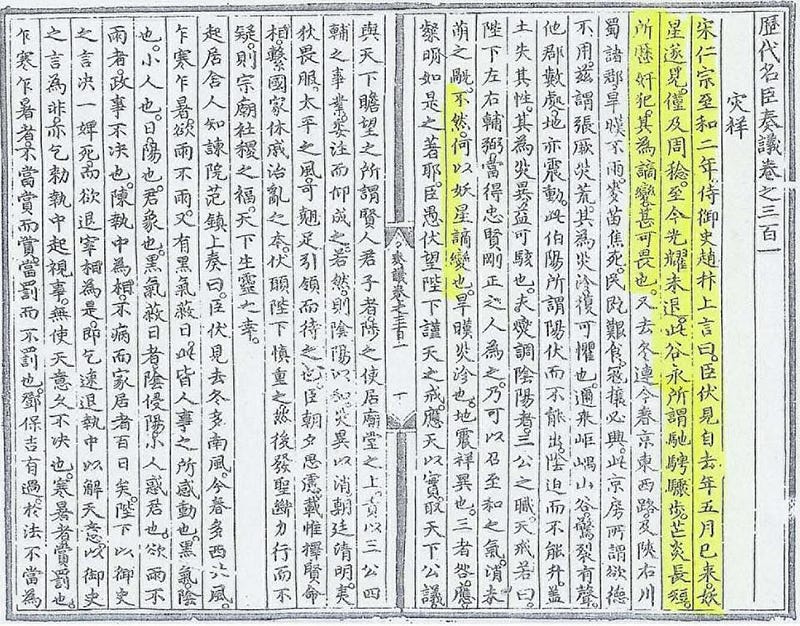 歷代名臣奏議卷之三百一
灾祥
宋仁宗至和二年侍御史趙抃上言曰。臣伏見自去年五月已來。妖
星遂見。僅及周稔。至今光耀未退。此谷永所謂馳騁驟步。芒炎長短。
所歷奸犯。其為謫變甚可畏也。又去冬連今春京東西路及陝右川
蜀諸郡。旱暵不雨。麥苗焦死。民既艱食。寇攘必興。此京房所謂欲德
不用。兹謂張厥災荒。其為災沴復可懼也。邇來岠嵎山谷驚裂有聲。
他郡數處地亦震動。此伯陽所謂陽伏而不能出。陰迫而不能升。蓋
土失其性。其為災異益可駭也。夫燮調陰陽者。三公之職。天戒若曰。
陛下左右輔弼。當得忠賢剛正之人為之。乃可以召至和之氣。消未
萌之。不然。何以妖星謫變也。旱暵災沴也。地震祥異也。三者咎應。
粲明如是之著耶。臣愚伏望陛下謹天之戒。應天以實。取天下公議
奏議卷之三百一
一
與天下瞻望之所謂賢人君子者。陟之使居廟堂之上。責以三公四
輔之事業。委注而仰成之。若然。則陰陽以和。災異以消。朝廷清明。夷
狄畏服。太平之風。可翹足引領而待之也。臣朝夕思慮。載惟擇賢命
相。繫國家休戚治亂之本。伏願陛下慎重之。然後發聖斷。力行而不
疑。則宗廟社稷之福。天下生靈之幸。
起居舍人知諫院范鎮上奏曰。臣伏見去冬多南風。今春多西北風。
乍寒乍暑。欲雨不雨。又有黑氣蔽日。此皆人事之所感動也。黑氣陰
也。小人也。日陽也。君象也。黑氣蔽日者。陰侵陽。小人惑君也。欲雨不
雨者。政事不決也。陳執中為相。不病而家居者百日矣。陛下以御史
之言決一婢死而欲退宰相為是。即乞速退執中以解天意。以御史
之言為非。亦乞勑執中起視事。無使天意久不決也。寒暑者。賞罰也。
乍寒乍暑者。不當賞而賞。當罰而不罰也。鄧保吉有過。於法不當為